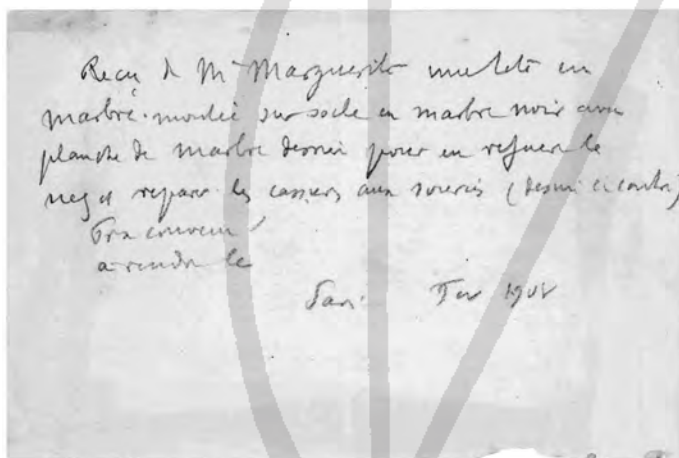 Reçu de Mr Marguerite une tete en
marbre. montée sur socle en marbre noir avec
planche de marbre dessein pour en refuser le
nez et reparer les cassures aux sourcils (dessin ci contre)
Prix convenu
a rendre le
Paris Fev 1908